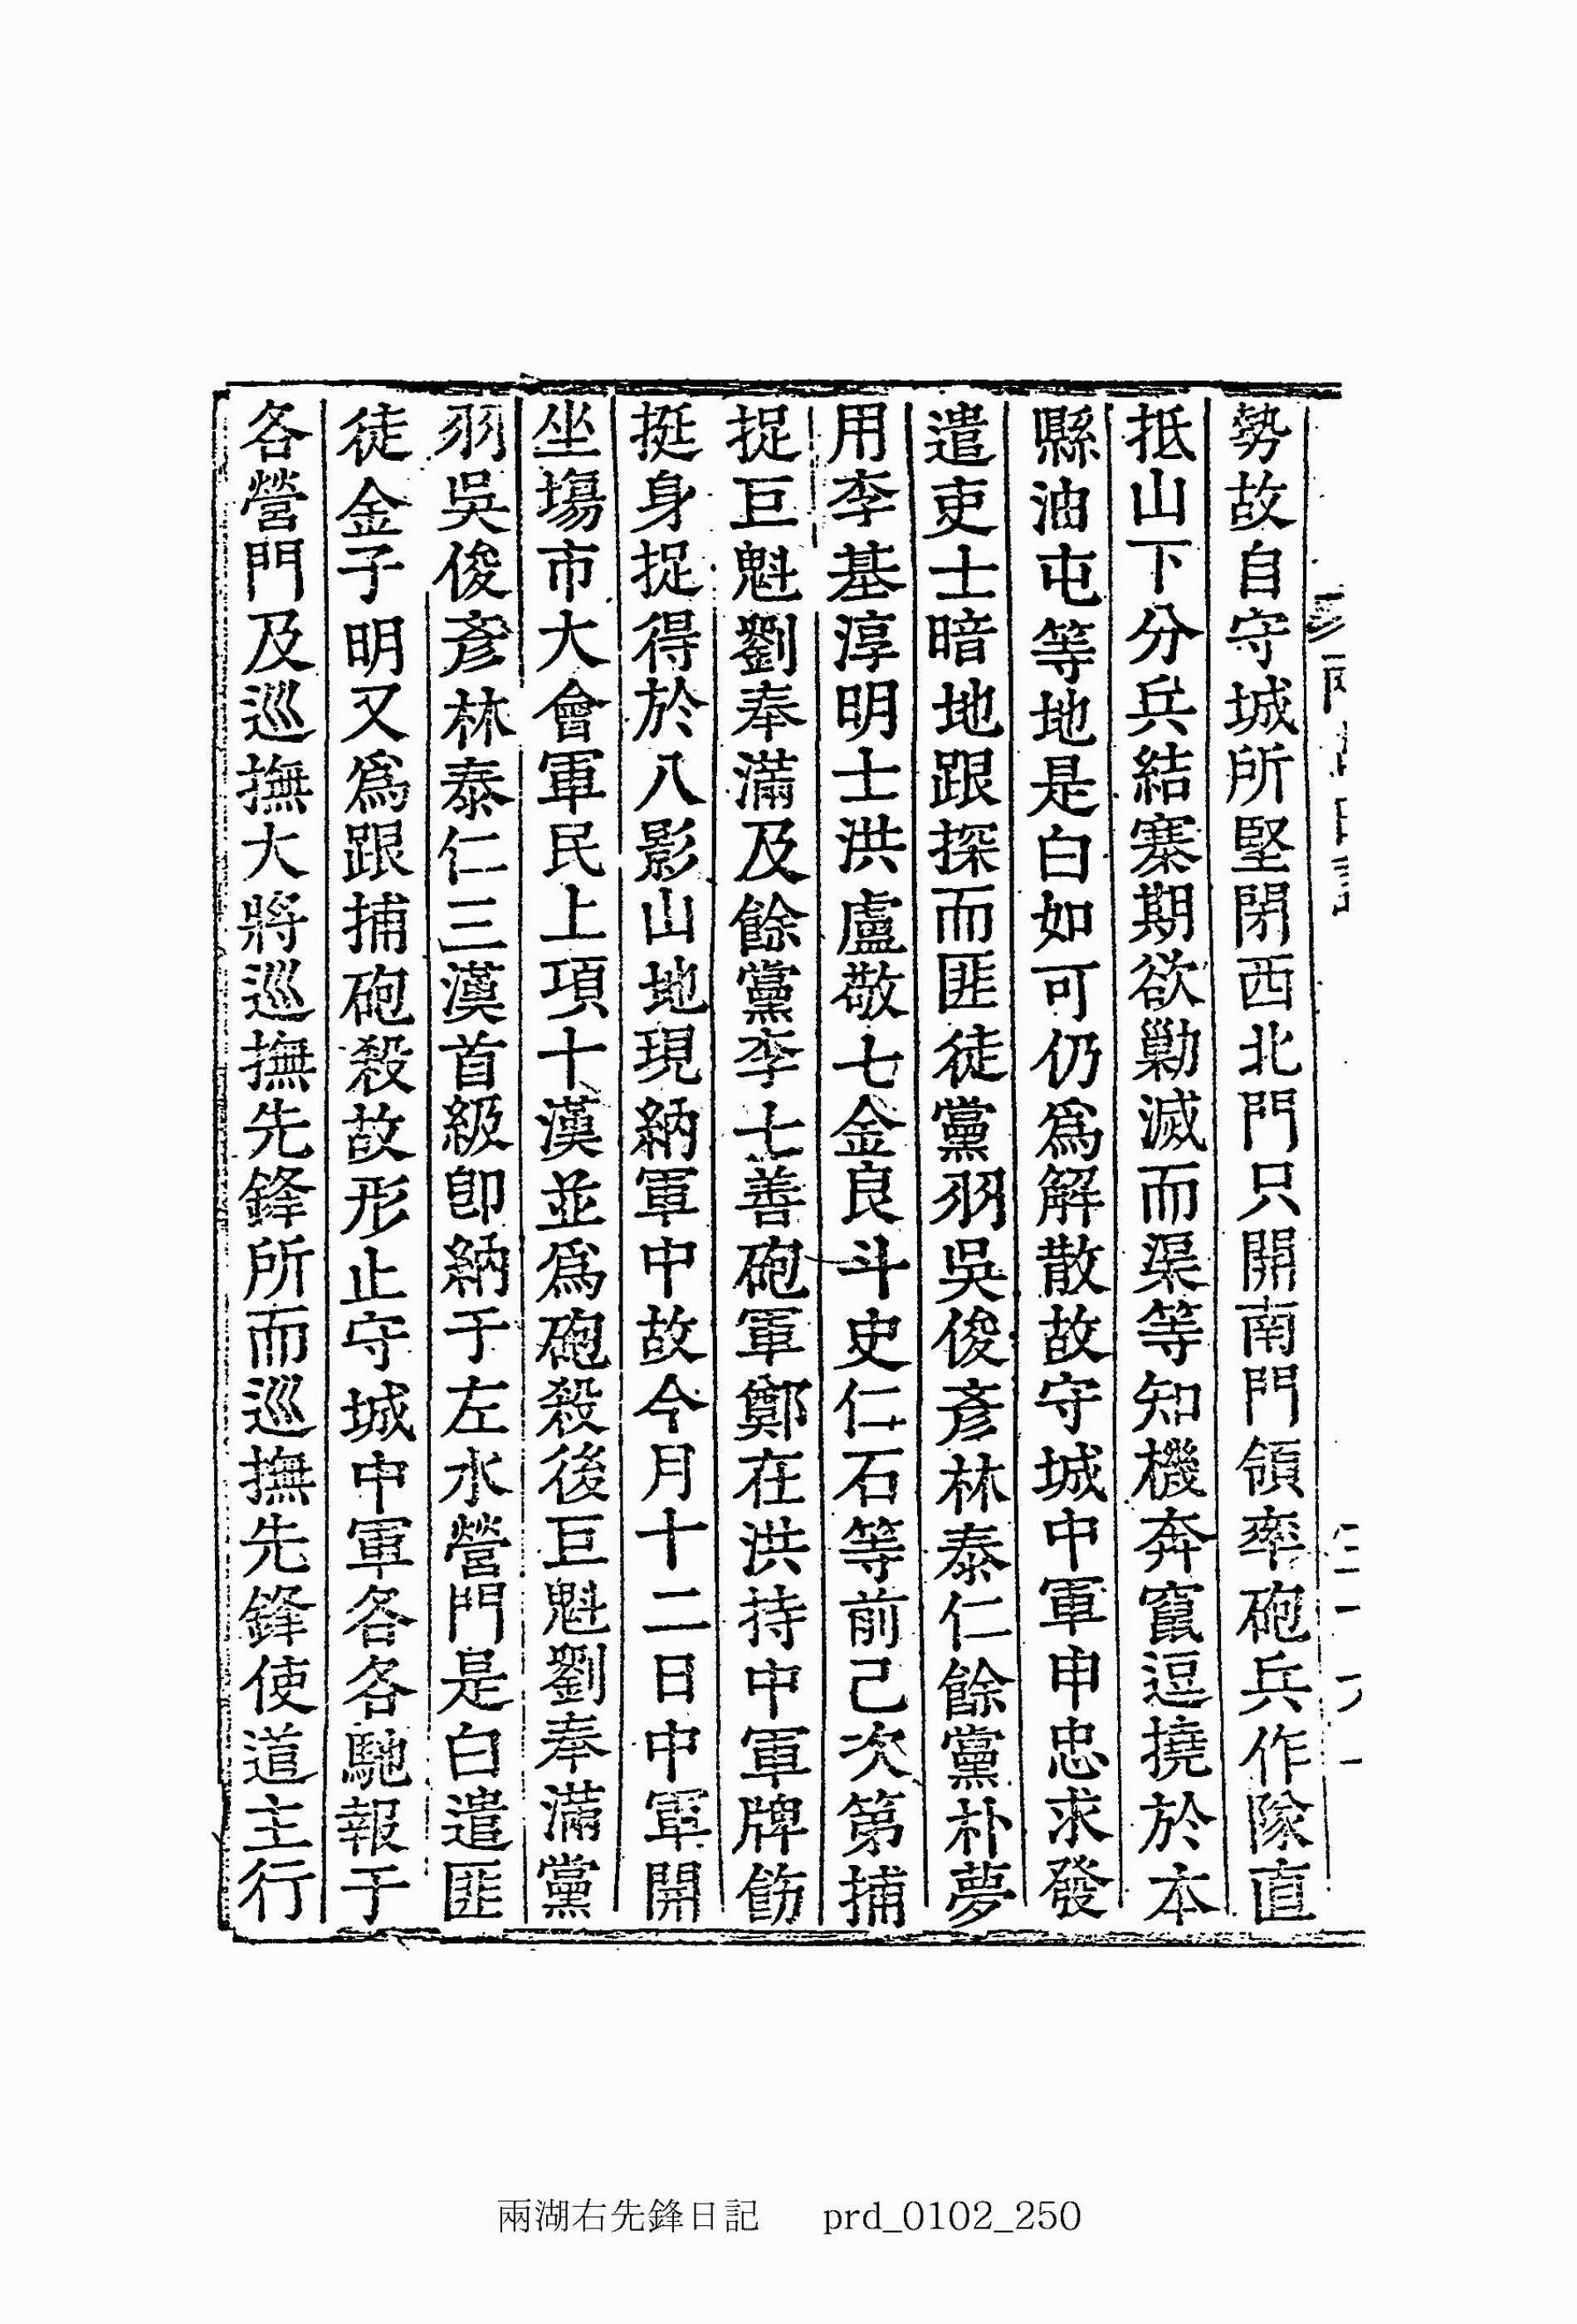 勢故自守城所堅閉西北門只開南門領率砲兵作隊直
抵山下分兵結寨期欲勦滅而渠等知機奔竄逗撓於本
縣油屯等地是白如可仍爲解散故守城中軍申忠求發
遣吏士暗地跟探而匪徒黨羽吳俊彥林泰仁餘黨朴夢
用李基淳明士洪盧敬七金良斗史仁石等前已次第捕
捉巨魁劉奉滿及餘黨李士善砲軍鄭在洪持中軍牌飭
挺身捉得於八影山地現納軍中故今月十二日中軍開
坐塲市大會軍民上項十漢並爲砲殺後巨魁劉奉滿黨
羽吳俊彥林泰仁三漢首級卽納于左水營門是白遣匪
徒金子明又爲跟捕砲殺故形止守城中軍各各馳報于
各營門及巡撫大將巡撫先鋒所而巡撫先鋒使道主行
兩湖右先鋒日記 prd_0102_250